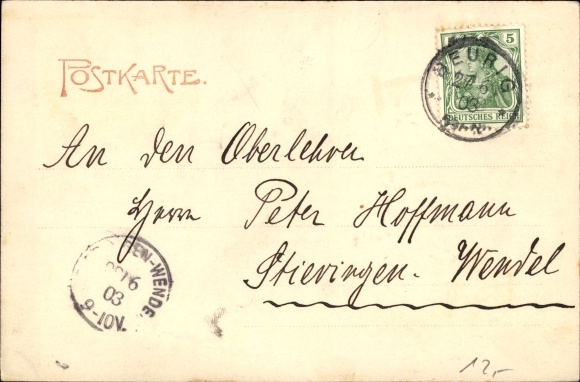 POSTKARTE.
5
BEURIG
27 6
03
DEUTSCHES REICH
An den Oberlehrer
Herrn Peter Hoffmann
Stieringen-Wendel
EN-WENDE
6
03
9-10V.
12,-